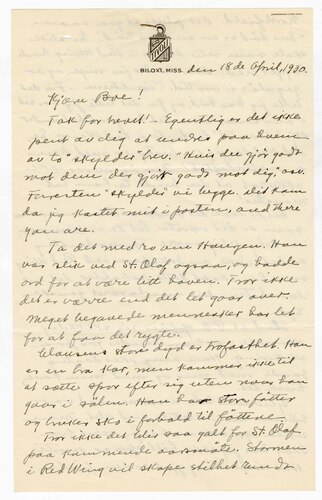 BILOXI, MISS. den 18de April, 1930.
Kjære Boe!
Tak for brevet! - Egentlig er det ikke
pent av dig at undres paa hvem
av to "skylder" brev. "Hvis du gjør godt
mot dem der gjør godt mot dig," osv.
Forresten "skylder" vi begge. Dit kom
da jeg kastet mit i posten, and there
you are.
Ta det med ro om Haugen. Han
var slik ved St. Olaf ogsaa, og hadde
ord for at være litt doven. Tror ikke
det er værre end det let gaar over.
Meget begavede mennesker har let
for at faa det rygte.
Clausens store dyd er trofasthet. Han
er en bra kar, men kommer ikke til
at sætte spor efter sig uten naar han
gaar i sølen. Han har store føtter
og bruker sko i forhold til føttene.
Tror ikke det blir saa galt for St. Olaf
paa kommende aarsmøte. Stormen
i Red Wing vil skape stilhet rundt